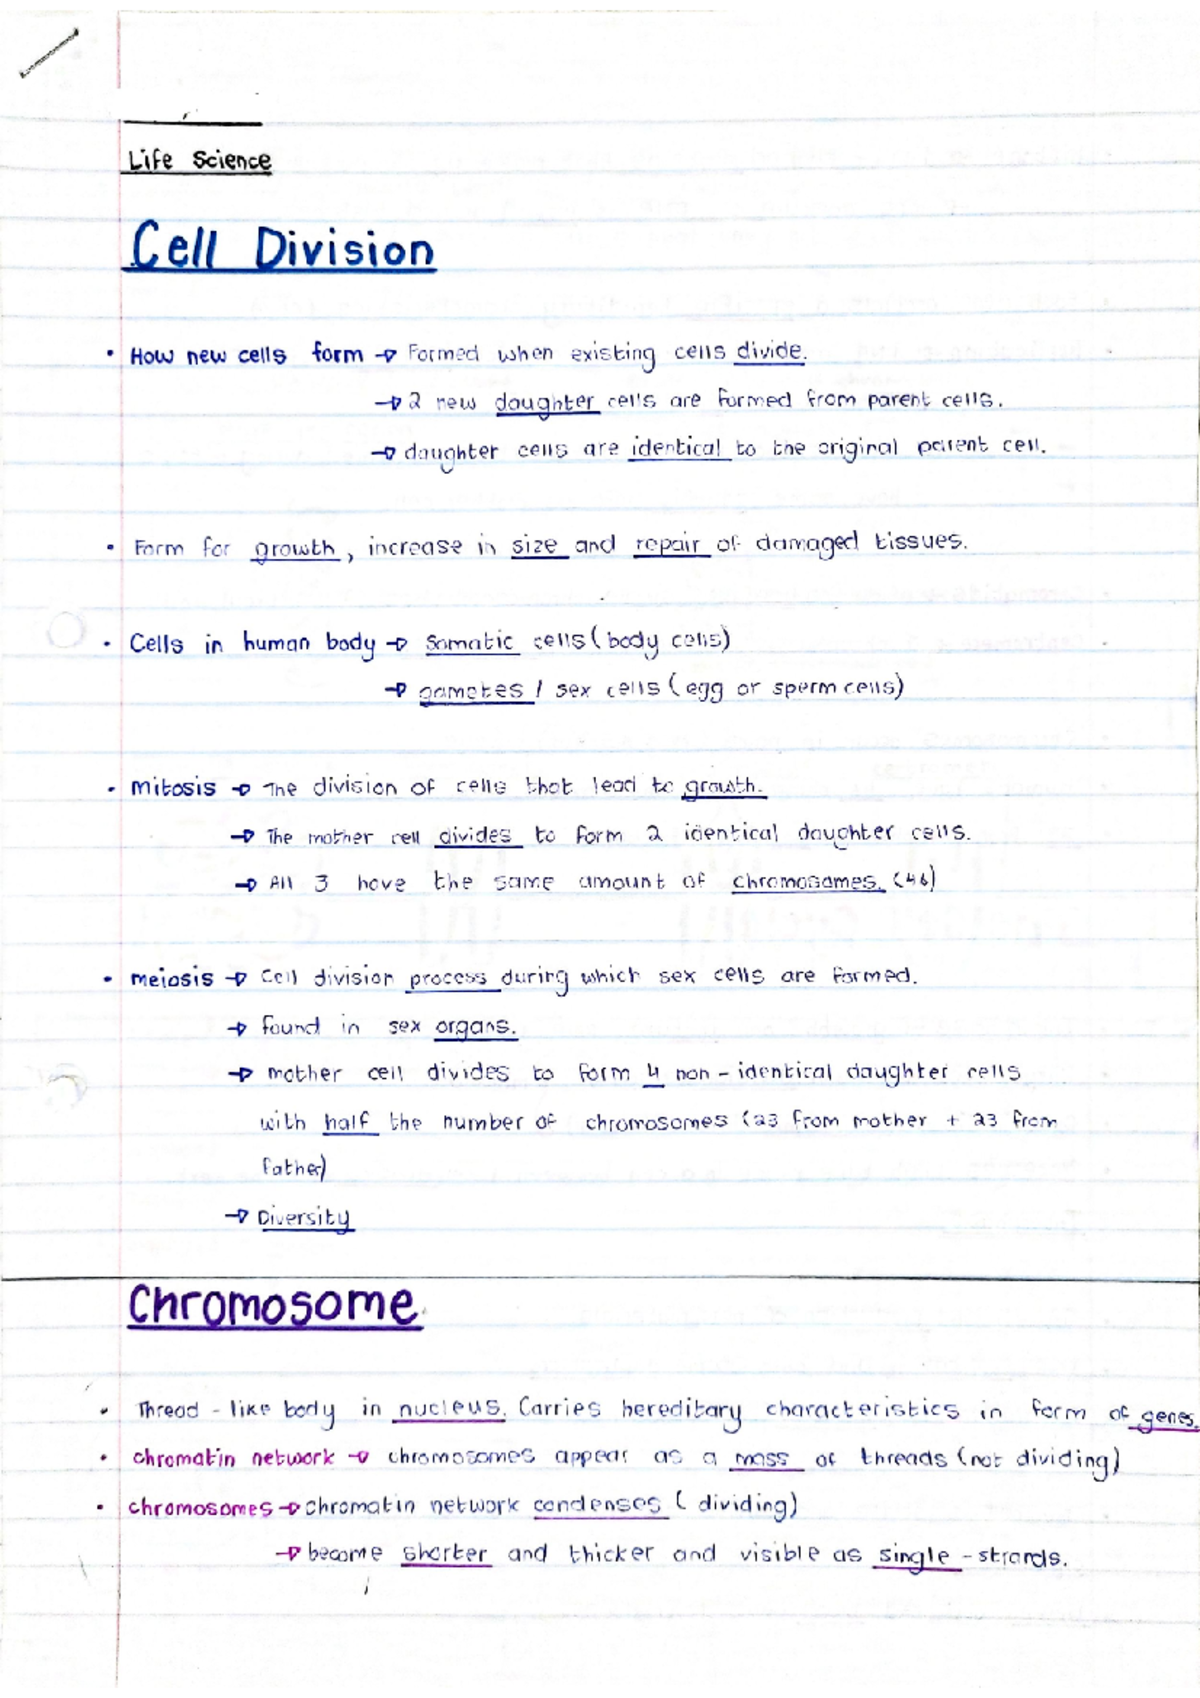 Life Science
Cell Division
• How new cells form → Formed when existing cells divide.
→ 2 new daughter cells are formed from parent cells.
→ daughter cells are identical to the original parent cell.
• Form for growth, increase in size and repair of damaged tissues.
• Cells in human body → Somatic cells (body cells)
→ gametes / sex cells (egg or sperm cells)
• mitosis → The division of cells that lead to growth.
→ The mother cell divides to form 2 identical daughter cells.
→ All 3 have the same amount of chromosomes. (46)
• meiosis → Cell division process during which sex cells are formed.
→ found in sex organs.
→ mother cell divides to form 4 non-identical daughter cells
with half the number of chromosomes (23 from mother + 23 from
father)
→ Diversity
Chromosome
• Thread-like body in nucleus. Carries hereditary characteristics in form of genes.
• chromatin network → chromosomes appear as a mass of threads (not dividing)
• chromosomes → chromatin network condenses (dividing)
→ become shorter and thicker and visible as single-strands.